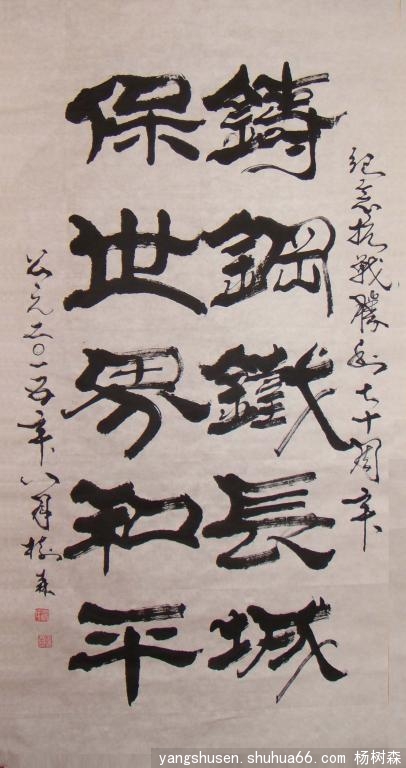 紀念抗戰勝利七十周年
鑄鋼鐵長城
保世界和平
公元二〇一五年八月樹森
yangshusen.shuhua66.com 杨树森